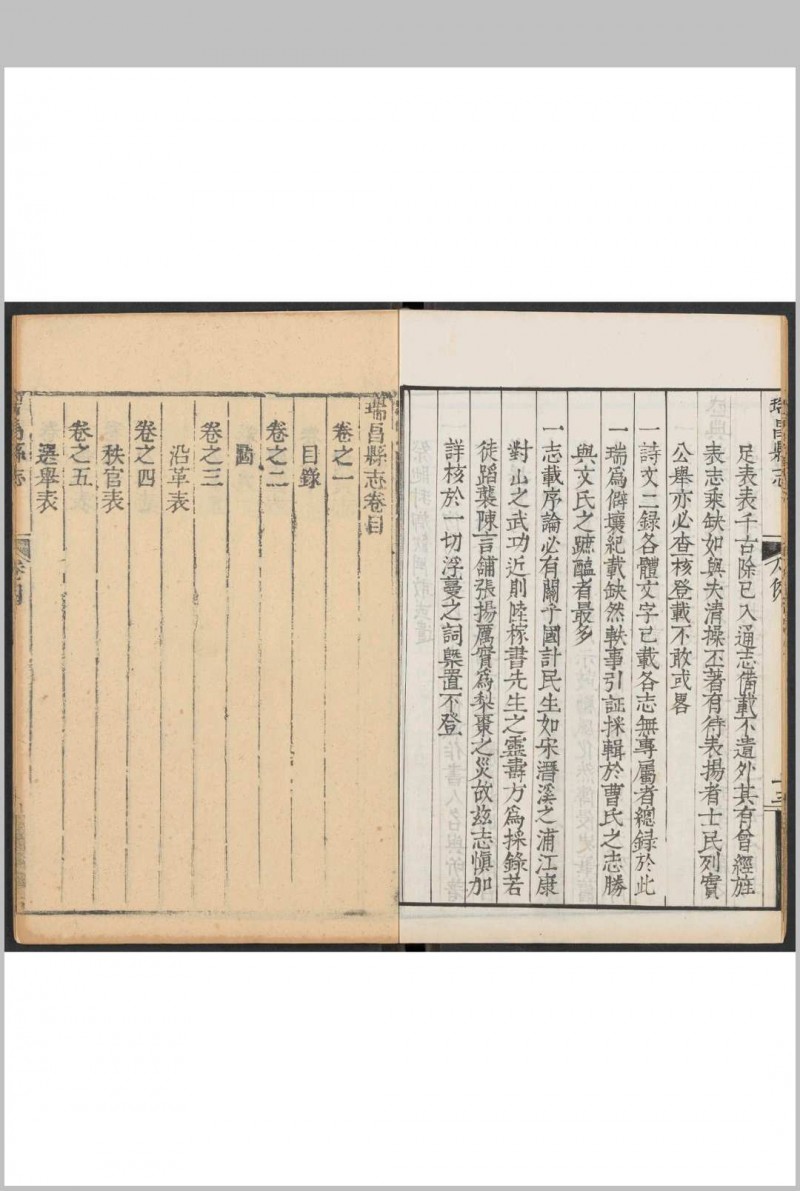 瑞昌縣志
凡例
足表表千古除已入通志備載不遺外其有曾經旌
表志乘缺如與夫清操丕著有待表揚者士民列實
公舉亦必查核登載不敢或畧
一詩文二錄各體文字已載各志無專屬者總録於此
一瑞為僻壤紀載缺然軼事引証採輯於曹氏之志勝
與文氏之蹠醢者最多
一志載序論必有關乎國計民生如宋潛溪之浦江康
對山之武功近則陸稼書先生之靈壽方為採錄若
徒蹈襲陳言鋪張揚厲實為梨棗之災故玆志愼加
詳核於一切浮蔓之詞槩置不登
瑞昌縣志卷目
卷之一
目錄
卷之二
圖
卷之三
沿革表
卷之四
秩官表
卷之五
選舉表
瑞昌縣志
卷目